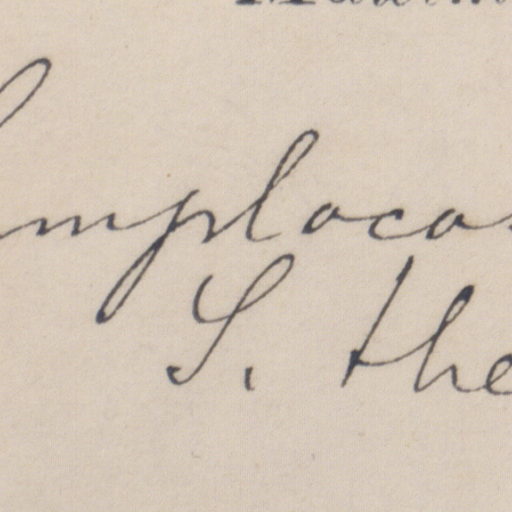 Symplocos
S. the